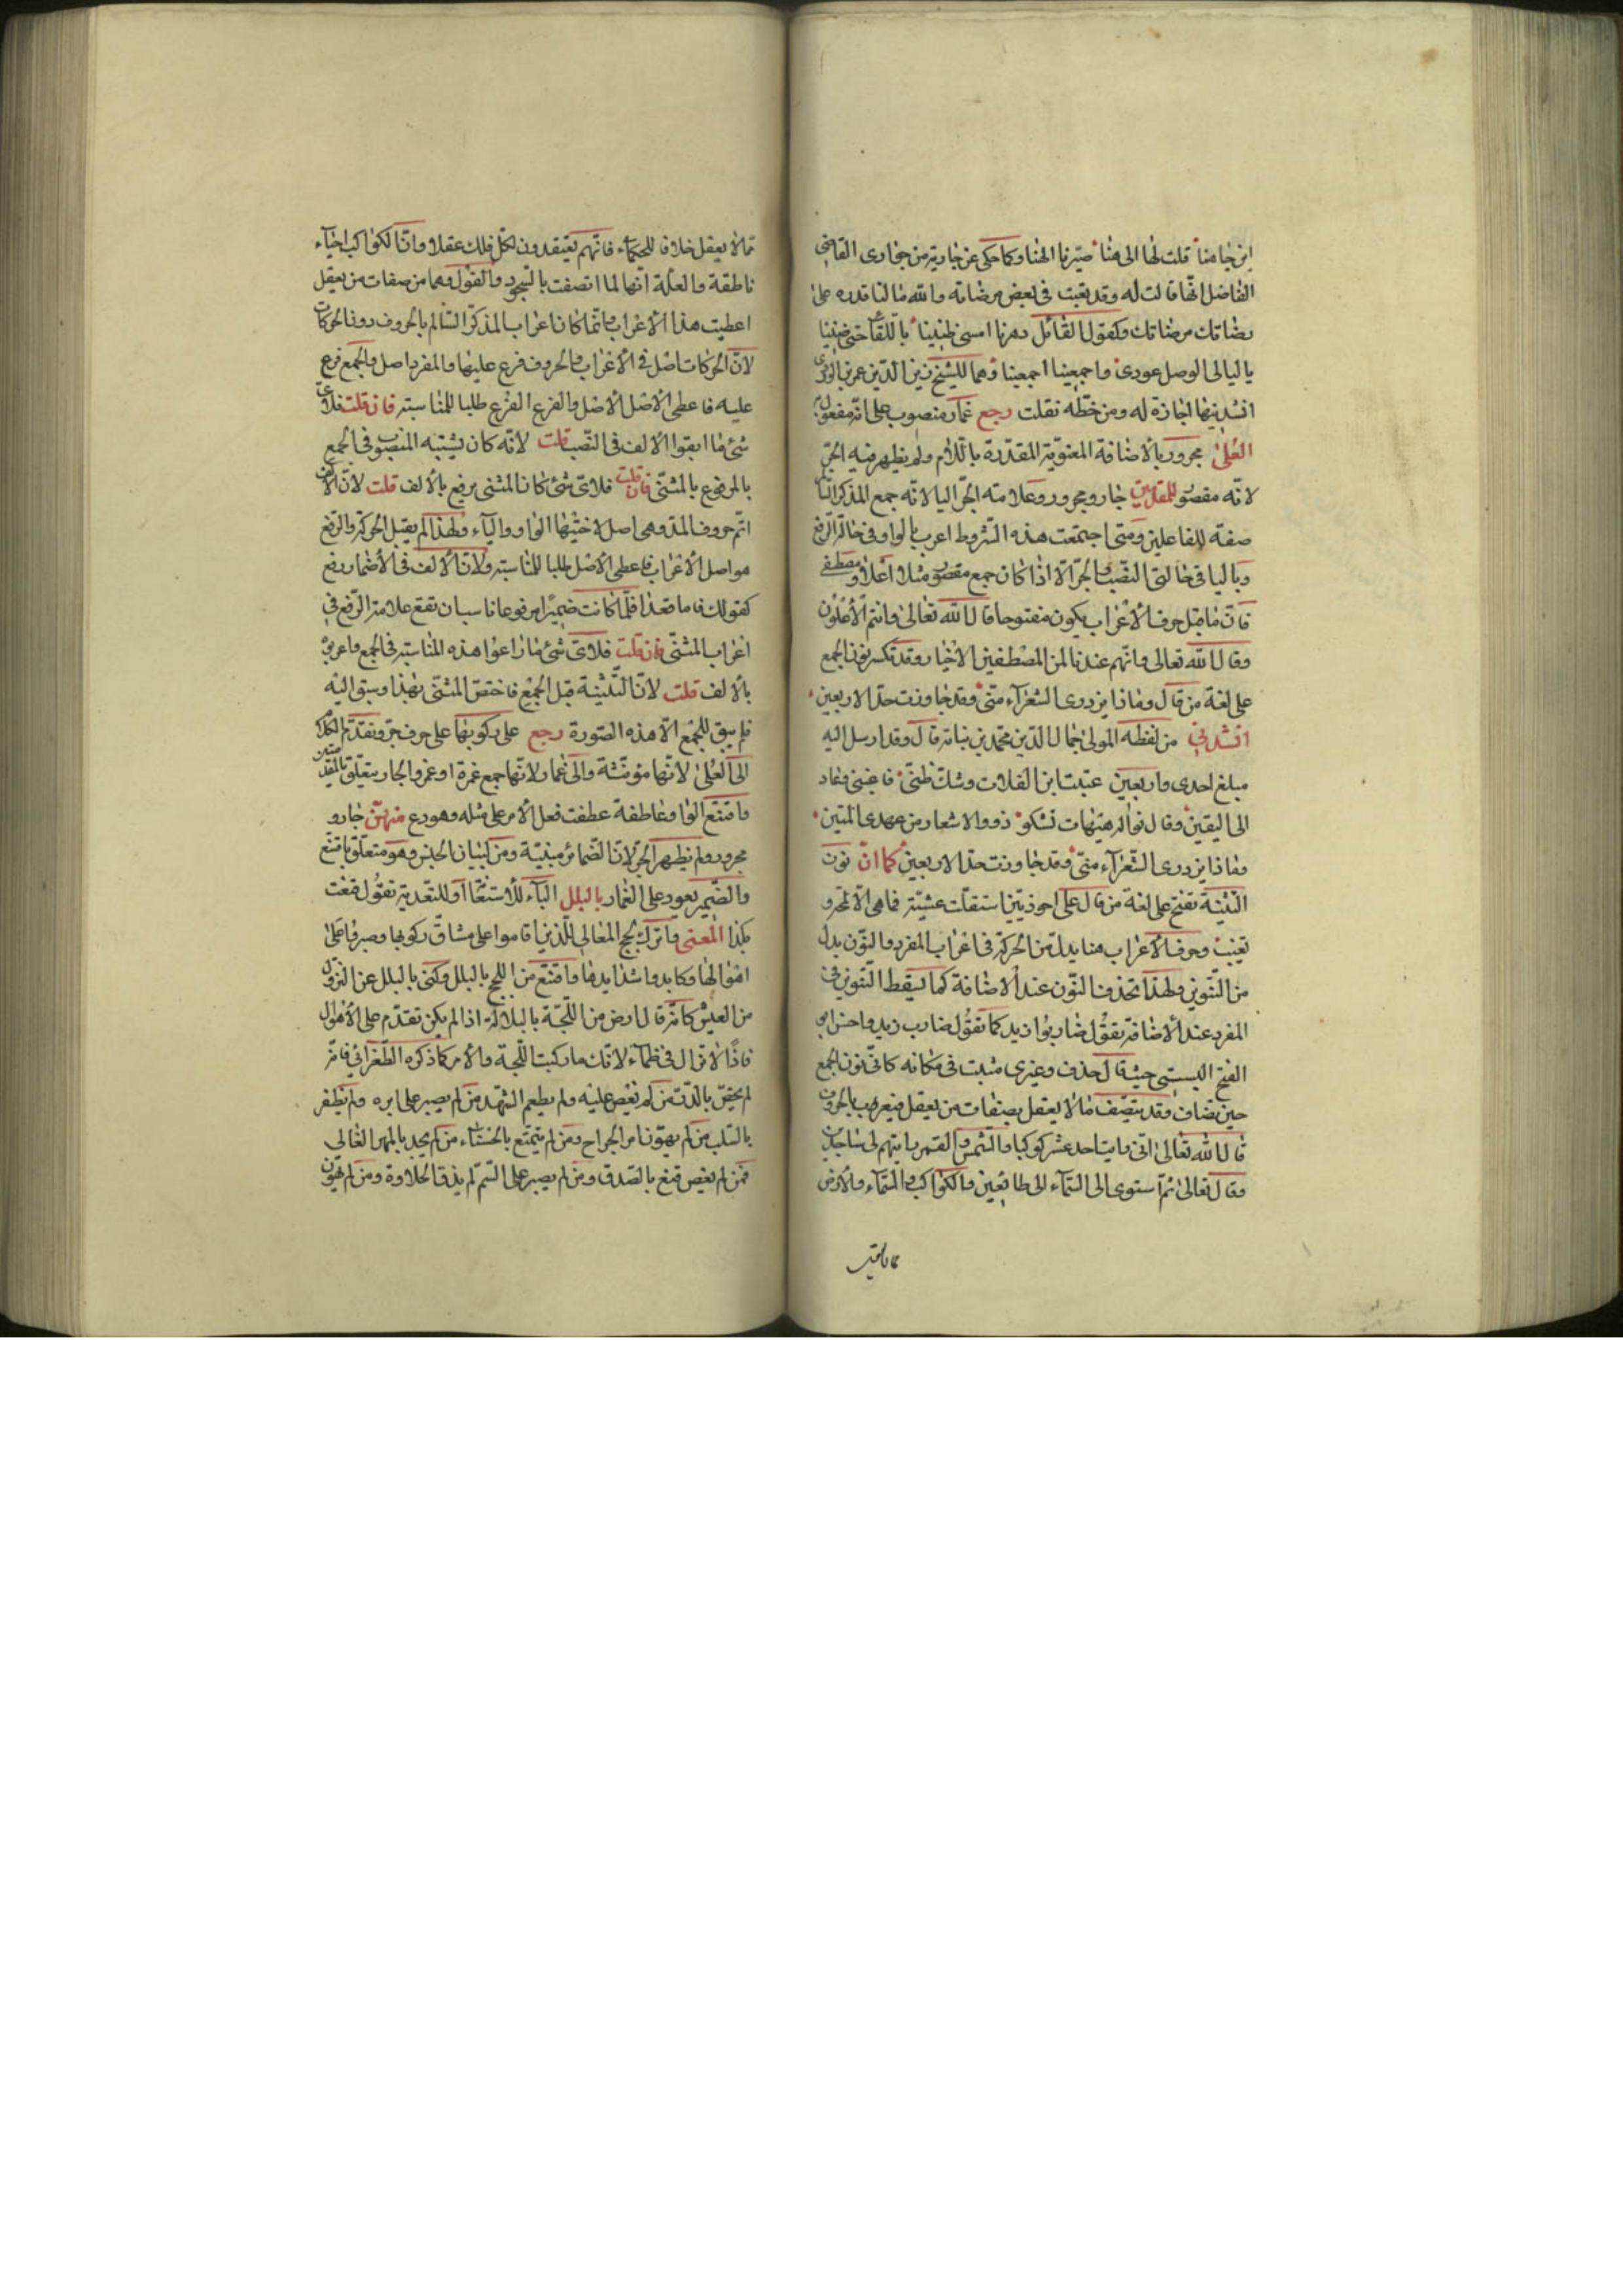 اين جا هنا قلت لها الى هنا صيرنا الهنا وكما حكى عن جارية من جوارى القاضى
الفاضل انها قالت له وقد تعبت فى بعض مرضاته والله ما لنا قدره على
مرضاتك وكقول القائل دهرنا امسى ضنينا باللقا حتى ضنينا
يا ليالى الوصل عودى واجمعينا اجمعينا وهما للشيخ زين الدين عمر بن الوردى
انشدنيهما اجازة له ومن خطه نقلت رجع غمار منصوب على انه مفعول به
العلى مجرور بالاضافة المعنوية المقدرة باللام ولم يظهر فيه الجر
لانه مقصور للمقدمين جار ومجرور وعلامته الجر اليا لانه جمع المذكر السالم
صفة للفاعلين ومتى اجتمعت هذه الشروط اعرب بالواو فى حالة الرفع
وباليا فى حالتى النصب والجر الا اذا كان جمع مقصور مثل اعلا ومصطفى
فان ما قبل حرف الاعراب يكون مفتوحا قال الله تعالى وانتم الاعلون
وقال الله تعالى وانهم عندنا لمن المصطفين الاخيار وقد تكسر نون الجمع
على لغة من قال وماذا يزدرى الشعراء منى وقد جاوزت حد الاربعين
انشدنى من لفظه المولى جمال الدين محمد بن نباته قال وقد ارسل اليه
مبلغ احدى واربعين عتبت ابن الفلات وشك ظنى فاعبنى فعاد
الى اليقين وقال نواله هيهات تشكو ذووا الاشعار من عهدى المتين
وماذا يزدرى الشعراء منى وقد جاوزت حد الاربعين كما ان نون
التثنية تفتح على لغة من قال على احوذيين استقلت عشية فما هى الا لمحة و
تغيب وحرف الاعراب هنا بدل من الحركة فى اعراب المفرد والنون بدل
من التنوين ولهذا تحذف النون عند الاضافة كما يسقط التنوين فى
المفرد عند الاضافة تقول ضاربوا زيد كما تقول ضارب زيد واحسن ابو
الفتح البستى حيث قال حذف وغيرى مثبت فى مكانه كانى نون الجمع
حين تضاف وقد يتصف ما لا يعقل بصفات من يعقل فيعرب بالحروف
قال الله تعالى انى رايت احد عشر كوكبا والشمس والقمر رايتهم لى ساجدين
وقال تعالى ثم استوى الى السماء الى طائعين والكواكب والسماء والارض
مما لا يعقل خلافا للحكماء فانهم يعتقدون لكل فلك عقلا وان الكواكب احياء
ناطقة والعلة انها لما اتصفت بالسجود والقول وهما من صفات من يعقل
اعطيت هذا الاعراب وانما كان اعراب المذكر السالم بالحروف دون الحركات
لان الحركات اصل فى الاعراب والحروف فرع عليها والمفرد اصل والجمع فرع
عليه فاعطى الاصل الاصل والفرع الفرع طلبا للمناسبة فان قلت فلاى
شئ ما ابقوا الالف فى النصب قلت لانه كان يشتبه المنصوب فى الجمع
بالمرفوع بالمثنى فان قلت فلاى شئ كان المثنى يرفع بالالف قلت لان الالف
اتم حروف المد وهى اصل لاختيها الواو والياء ولهذا لم يقبل الحركة والرفع
هو اصل الاعراب فاعطى الاصل طلبا للمناسبة ولان الالف فى الاضمار رفع
كقولك قاما قعدا فلما كانت ضميرا مرفوعا ناسب ان تقع علامة الرفع فى
اعراب المثنى فان قلت فلاى شئ ما راعوا هذه المناسبة فى الجمع واعربوه
بالالف قلت لان التثنية قبل الجمع فاختص المثنى بهذا وسبق اليه
فلم يبق للجمع الا هذه الصورة رجع على ركوبها على حرف جر وتقدم الكلام
الى العلى لانها مؤنثة والى غمار لانها جمع غمرة او غمر والجار يتعلق بالمقدمين
واقتنع الواو عاطفة عطفت فعل الامر على مثله وهو دع منهن جار و
مجرور ولم يظهر الجر لان الضمائر مبنية ومن لبيان الجنس وهو متعلق باقتنع
والضمير يعود على الغمار بالبلل الباء للاستعانة او للتعدية تقول قنعت
بكذا المعنى واترك لجج المعالى للذين اقاموا على مشاق ركوبها وصبروا على
اهوالها وكابدوا شدايدها واقتنع من اللجج بالبلل وكنى بالبلل عن النزول
من العيش كانه قال ارض من اللجة بالبلالة اذا لم يكن تقدم على الاهوال
فاذا لا تزال فى ظماء لانك ما ركبت اللجة والامر كما ذكره الطغرائى فانه
لم يحض بالدر من لم يغص عليه ولم يطعم الشهد من لم يصبر على ابره ولم يظفر
بالسلب من لم يهون امر الجراح ومن لم يتمتع بالحسناء من لم يجد بالمهر الغالى
فمن لم يغص قنع بالصدف ومن لم يصبر على السم لم يذق الحلاوة ومن لم يهون